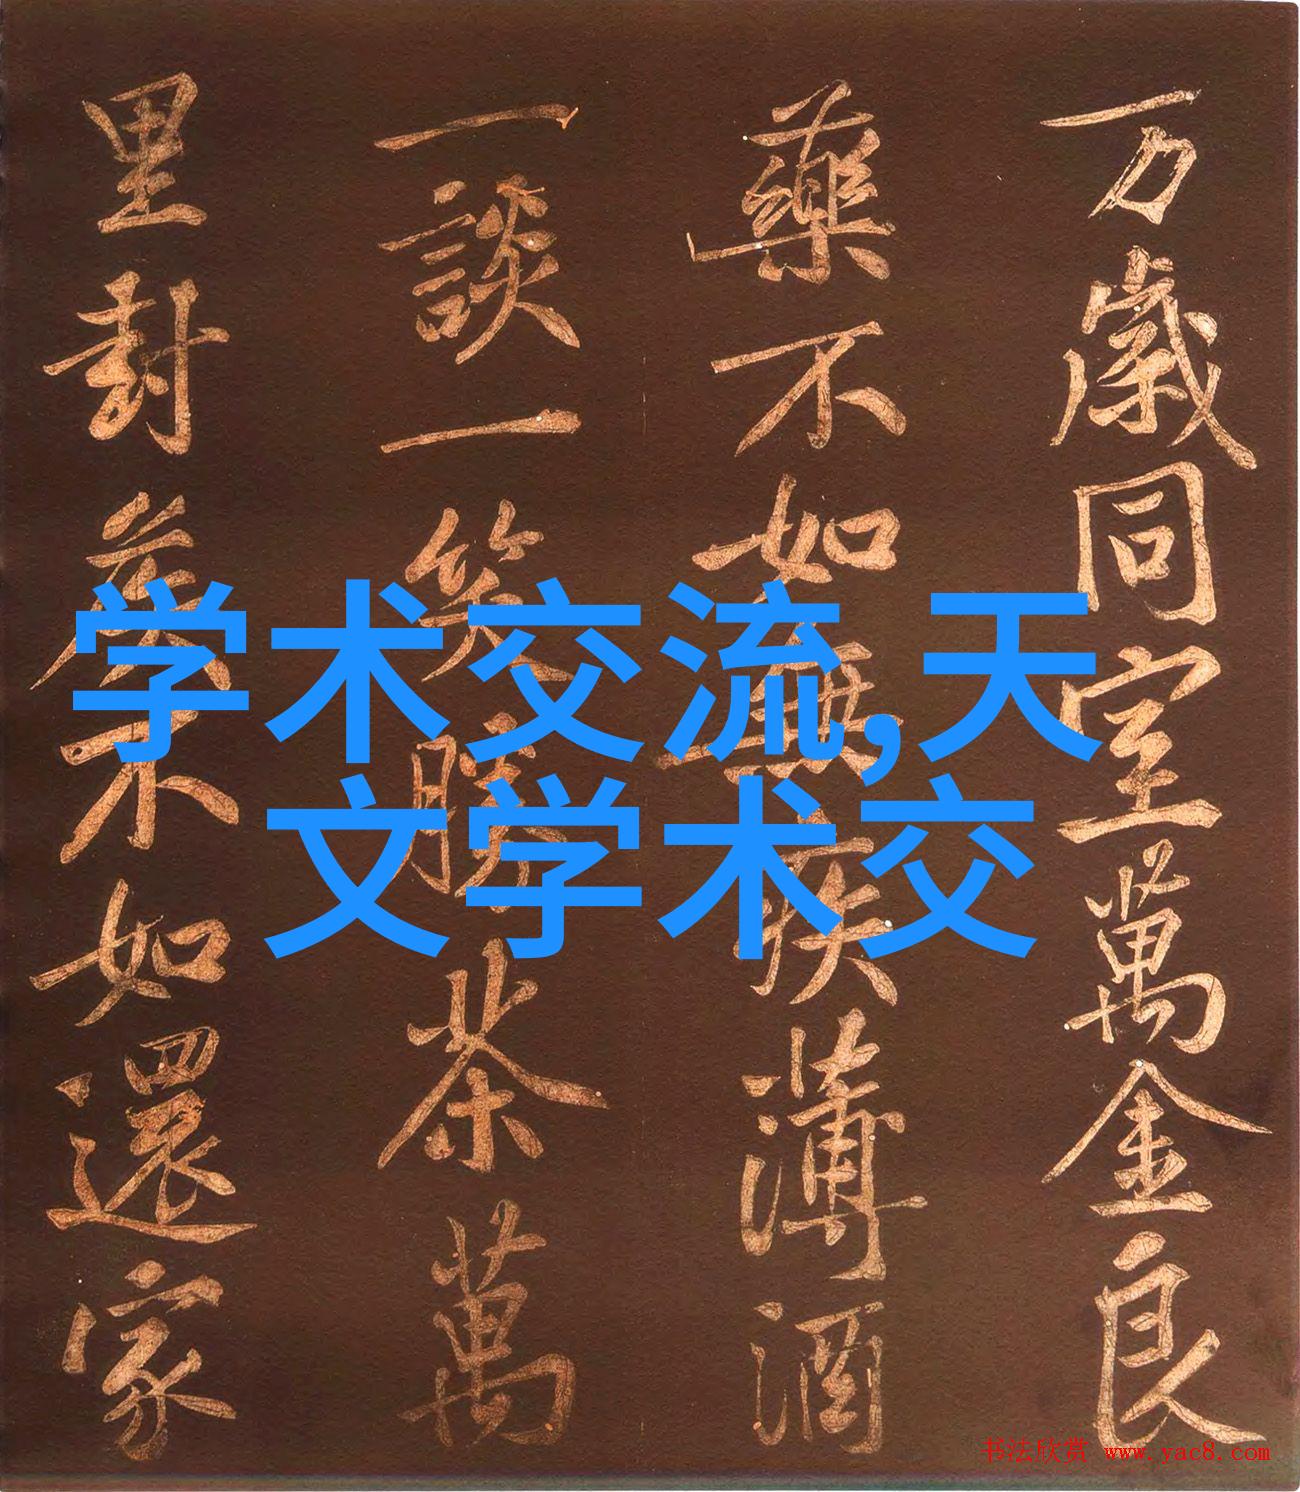 万歲同室萬金良
藥不如無疾薄酒
一談一笑勝茶萬
里封侯不如還家
学术交流,天
文学术交
书法欣赏 www.yac8.com